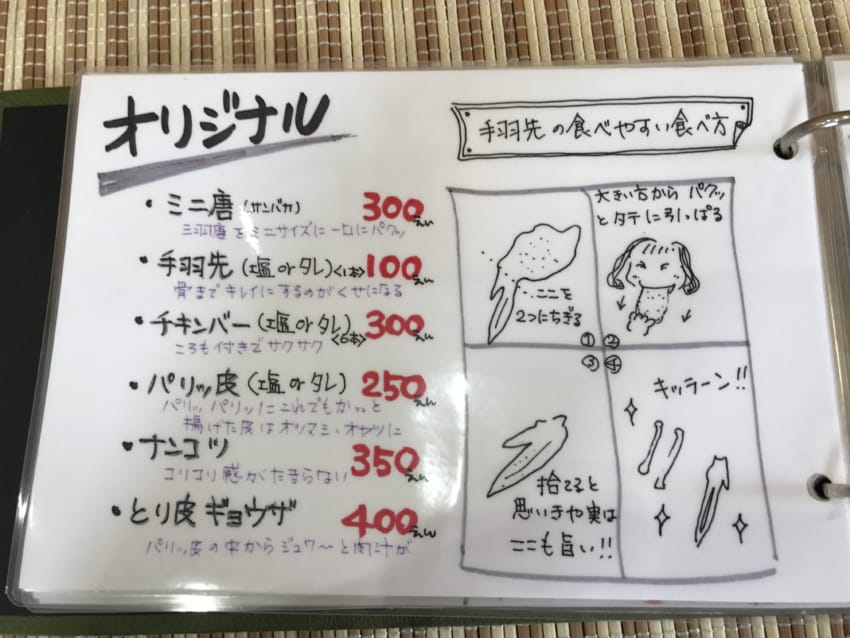 オリジナル
・ミニ唐(サンバカ) 300えん
三羽唐をミニサイズに一口にパクッ
・手羽先(塩orタレ)<1本> 100えん
骨までキレイにするのがくせになる
・チキンバー(塩orタレ)<6本> 300えん
ころも付きでサクサク
・パリッ皮(塩orタレ) 250えん
パリッパリッにこれでもかっっと
揚げた皮はオツマミ、オヤツに
・ナンコツ 350えん
コリコリ感がたまらない
・とり皮ギョウザ 400えん
パリッ皮の中からジュワ〜と肉汁が
手羽先の食べやすい食べ方
ここを
2つにちぎる
①
大きい方からパクッ
とタテに引っぱる
②
③
捨てると
思いきや実は
ここも旨い!!
④
キッラーン!!